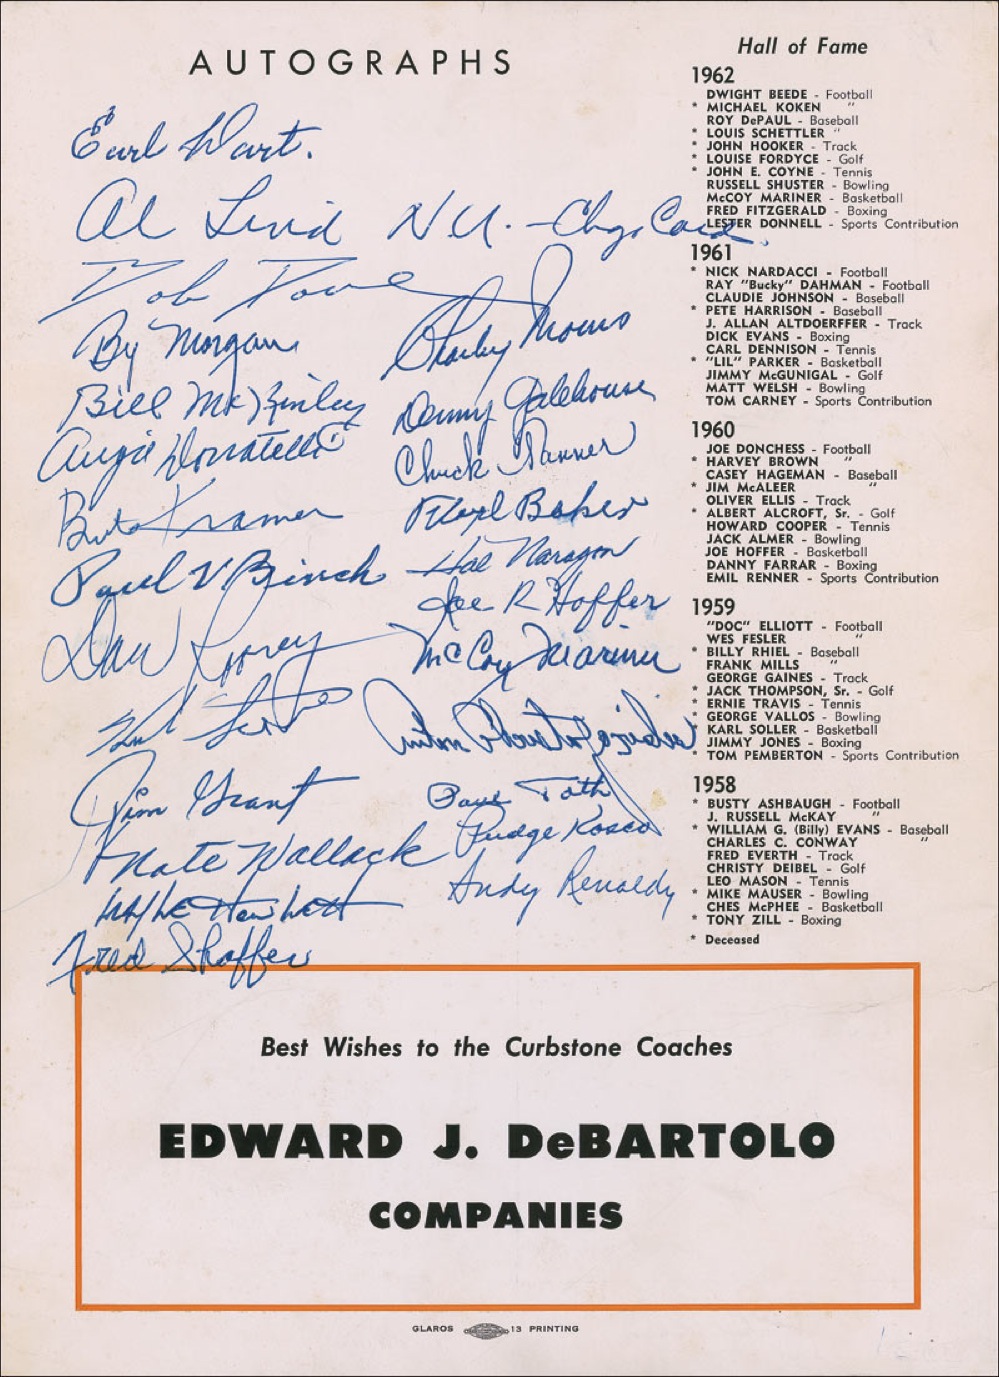 AUTOGRAPHS
Earl Dart.
Al
N.U. - Chgo Card.
Bob
By Morgan
Bill McKinley
Augie Donatelli
Kramer
Paul V Binch
Dan
Jim Grant
Nate Wallack
Fred Shaffer
Charley
Denny Galehouse
Chuck Tanner
Floyd Baker
Hal Naragon
Joe R Hoffer
McCoy Mariner
Toth
Pudge Rosco
Andy Renaldy
Hall of Fame
1962
DWIGHT BEEDE - Football
* MICHAEL KOKEN "
ROY DePAUL - Baseball
* LOUIS SCHETTLER "
* JOHN HOOKER - Track
* LOUISE FORDYCE - Golf
* JOHN E. COYNE - Tennis
RUSSELL SHUSTER - Bowling
McCOY MARINER - Basketball
FRED FITZGERALD - Boxing
LESTER DONNELL - Sports Contribution
1961
* NICK NARDACCI - Football
RAY "Bucky" DAHMAN - Football
CLAUDIE JOHNSON - Baseball
* PETE HARRISON - Baseball
J. ALLAN ALTDOERFFER - Track
DICK EVANS - Boxing
CARL DENNISON - Tennis
* "LIL" PARKER - Basketball
JIMMY McGUNIGAL - Golf
MATT WELSH - Bowling
TOM CARNEY - Sports Contribution
1960
JOE DONCHESS - Football
* HARVEY BROWN "
CASEY HAGEMAN - Baseball
* JIM McALEER "
OLIVER ELLIS - Track
* ALBERT ALCROFT, Sr. - Golf
HOWARD COOPER - Tennis
JACK ALMER - Bowling
JOE HOFFER - Basketball
DANNY FARRAR - Boxing
EMIL RENNER - Sports Contribution
1959
"DOC" ELLIOTT - Football
WES FESLER "
* BILLY RHIEL - Baseball
FRANK MILLS "
GEORGE GAINES - Track
* JACK THOMPSON, Sr. - Golf
* ERNIE TRAVIS - Tennis
* GEORGE VALLOS - Bowling
KARL SOLLER - Basketball
JIMMY JONES - Boxing
* TOM PEMBERTON - Sports Contribution
1958
* BUSTY ASHBAUGH - Football
J. RUSSELL McKAY "
* WILLIAM G. (Billy) EVANS - Baseball
CHARLES C. CONWAY "
FRED EVERTH - Track
CHRISTY DEIBEL - Golf
LEO MASON - Tennis
* MIKE MAUSER - Bowling
CHES McPHEE - Basketball
* TONY ZILL - Boxing
* Deceased
Best Wishes to the Curbstone Coaches
EDWARD J. DeBARTOLO
COMPANIES
GLAROS 13 PRINTING